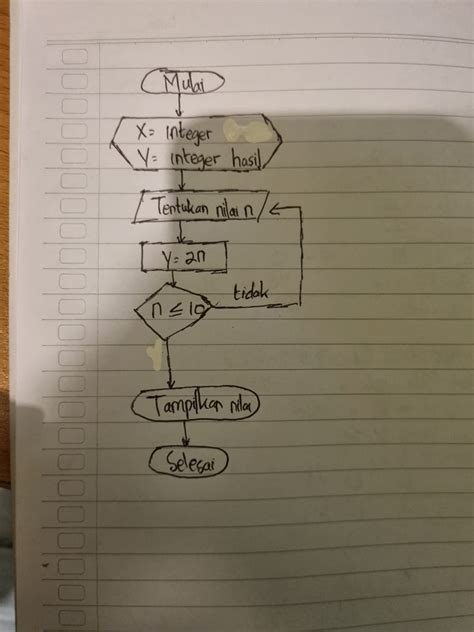 Mulai
X= integer
Y= integer hasil
Tentukan nilai n
Y=2n
n ≤ 10
tidak
Tampilkan nilai
Selesai